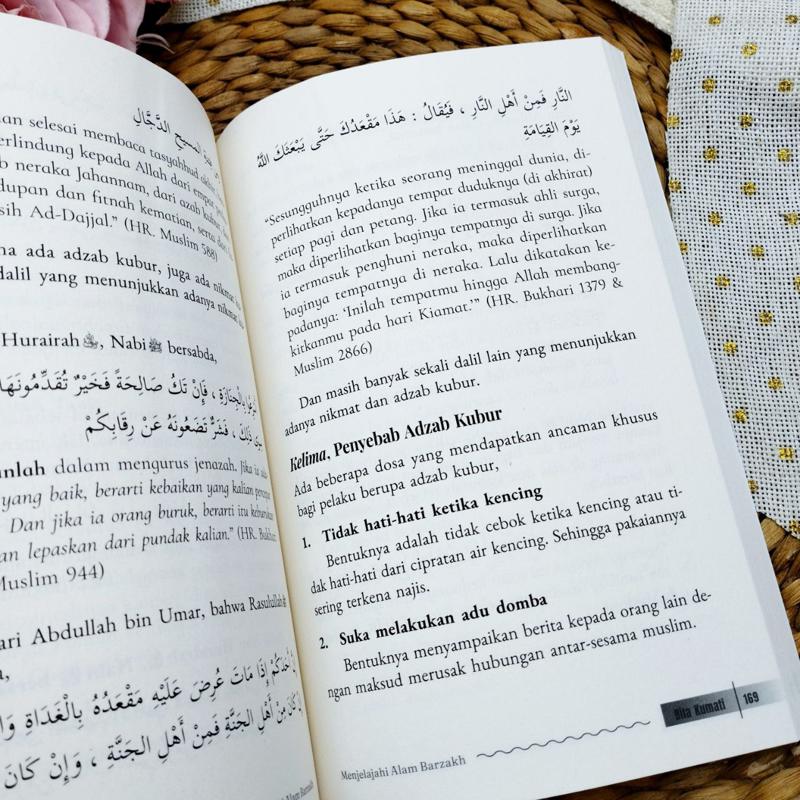 المسيح الدَّجَّالِ
selesai membaca tasyahhud
erlindung kepada Allah dari
neraka Jahannam, dari azab
dupan dan fitnah kematian,
sih Ad-Dajjal." (HR. Muslim 588)
na ada adzab kubur, juga ada nikmat
dalil yang menunjukkan adanya nikmat
Hurairah ﷺ, Nabi ﷺ bersabda,
بِالْجِنَازَةِ ، فَإِنْ تَكُ صَالِحَةً فَخَيْرٌ تُقَدِّمُونَهَا
ذَلِكَ ، فَشَرٌّ تَضَعُونَهُ عَنْ رِقَابِكُمْ
nlah dalam mengurus jenazah. Jika ia
yang baik, berarti kebaikan yang kalian
Dan jika ia orang buruk, berarti
an lepaskan dari pundak kalian." (HR.
Muslim 944)
ari Abdullah bin Umar, bahwa
a,
أَحَدَكُمْ إِذَا مَاتَ عُرِضَ عَلَيْهِ مَقْعَدُهُ بِالْغَدَاةِ
كَانَ مِنْ أَهْلِ الجَنَّةِ فَمِنْ أَهْلِ الجَنَّةِ ، وَإِنْ كَانَ
النَّارِ فَمِنْ أَهْلِ النَّارِ ، فَيُقَالُ : هَذَا مَقْعَدُكَ حَتَّى يَبْعَثَكَ اللَّهُ
يَوْمَ القِيَامَةِ
"Sesungguhnya ketika seorang meninggal dunia, di-
perlihatkan kepadanya tempat duduknya (di akhirat)
setiap pagi dan petang. Jika ia termasuk ahli surga,
maka diperlihatkan baginya tempatnya di surga. Jika
ia termasuk penghuni neraka, maka diperlihatkan
baginya tempatnya di neraka. Lalu dikatakan ke-
padanya: 'Inilah tempatmu hingga Allah membang-
kitkanmu pada hari Kiamat.'" (HR. Bukhari 1379 &
Muslim 2866)
Dan masih banyak sekali dalil lain yang menunjukkan
adanya nikmat dan adzab kubur.
Kelima, Penyebab Adzab Kubur
Ada beberapa dosa yang mendapatkan ancaman khusus
bagi pelaku berupa adzab kubur,
1. Tidak hati-hati ketika kencing
Bentuknya adalah tidak cebok ketika kencing atau ti-
dak hati-hati dari cipratan air kencing. Sehingga pakaiannya
sering terkena najis.
2. Suka melakukan adu domba
Bentuknya menyampaikan berita kepada orang lain de-
ngan maksud merusak hubungan antar-sesama muslim.
Menjelajahi Alam Barzakh
Bita Kumati 169